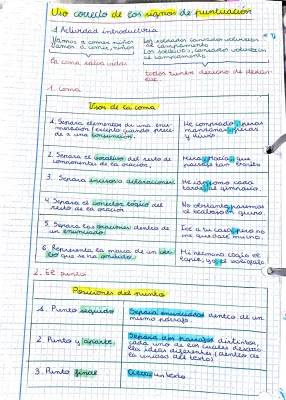 Uso correcto de los signos de puntuación
Actividad introductoria
Vamos a comer niños
Vamos a comer, niños
Los soldados cansados volvieron
al campamento
Los soldados, cansados, volvieron
al campamento
La coma salva vidas
1. Coma
Usos de la coma
1. Separa elementos de una enu-
meración (excepto cuando prece-
de a una
He comprado peras
manzanas, 
y kiwis
2. Separa el vocativo del resto de
componentes de la oración.
Mira, Rocío, que
pasteles tan
3. Separa incisos o aclaraciones
He ido, como cada
tarde, al gimnasio.
4. Separa el conector lógico del
resto de la oración
No obstante, haremos
el 
5. Separa las oraciones dentro de
un enunciado.
Fui a tu casa, pero no
me quedaré mucho.
6. Representa la marca de un ver-
bo que se ha omitido.
Mi hermano cogió el
y yo, el
2. El punto
Posiciones del punto
1. Punto seguido
Separa enunciados dentro de un
mismo párrafo.
2. Punto y aparte
Separa dos párrafos distintos,
cada uno de los cuales desarro-
lla ideas diferentes (dentro de
la unidad del texto)
3. Punto final
Cierra un texto